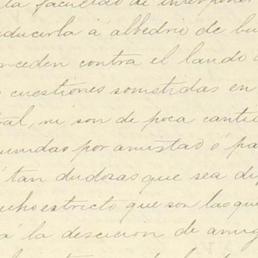 la facultad de interponer
ducirla á albedrio de bu
ceden contra el laudo
cuestiones sometidas en
ral, ni son de poca canti
unidas por amistad ó pa
tan dudosas que sea di
cho estricto que son las que
á la descición de amig